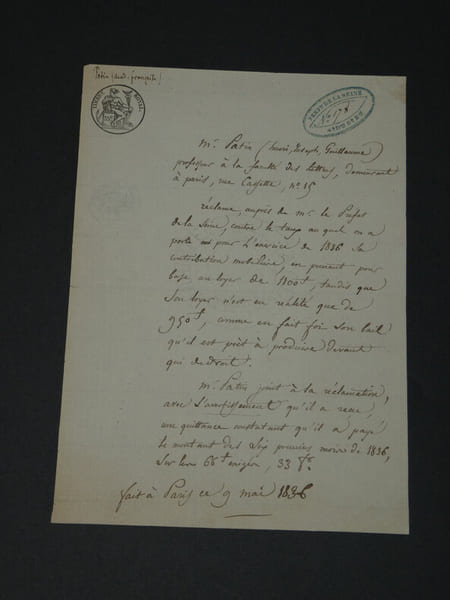 Patin (acad. française)
TIMBRE ROYAL
PREF. DE LA SEINE
Mr. Patin (henri, Joseph, Guillaume)
professeur à la faculté des lettres, demeurant
à paris, rue Cassette, no. 15
réclame, auprès de mr. le Préfet
de la Seine, contre le taux auquel on a
porté ici pour l'exercice de 1836 sa
contribution mobilière, en prenant pour
base un loyer de 1100f, tandis que
son loyer n'est en réalité que de
950f, comme en fait foi son bail
qu'il est prêt à produire devant
qui de droit.
Mr. Patin joint à la réclamation,
avec l'avertissement qu'il a reçu,
une quittance constatant qu'il a payé
le montant des six premiers mois de 1836,
sur les 66f exigés, 33 fr.
fait à Paris ce 9 mai 1836